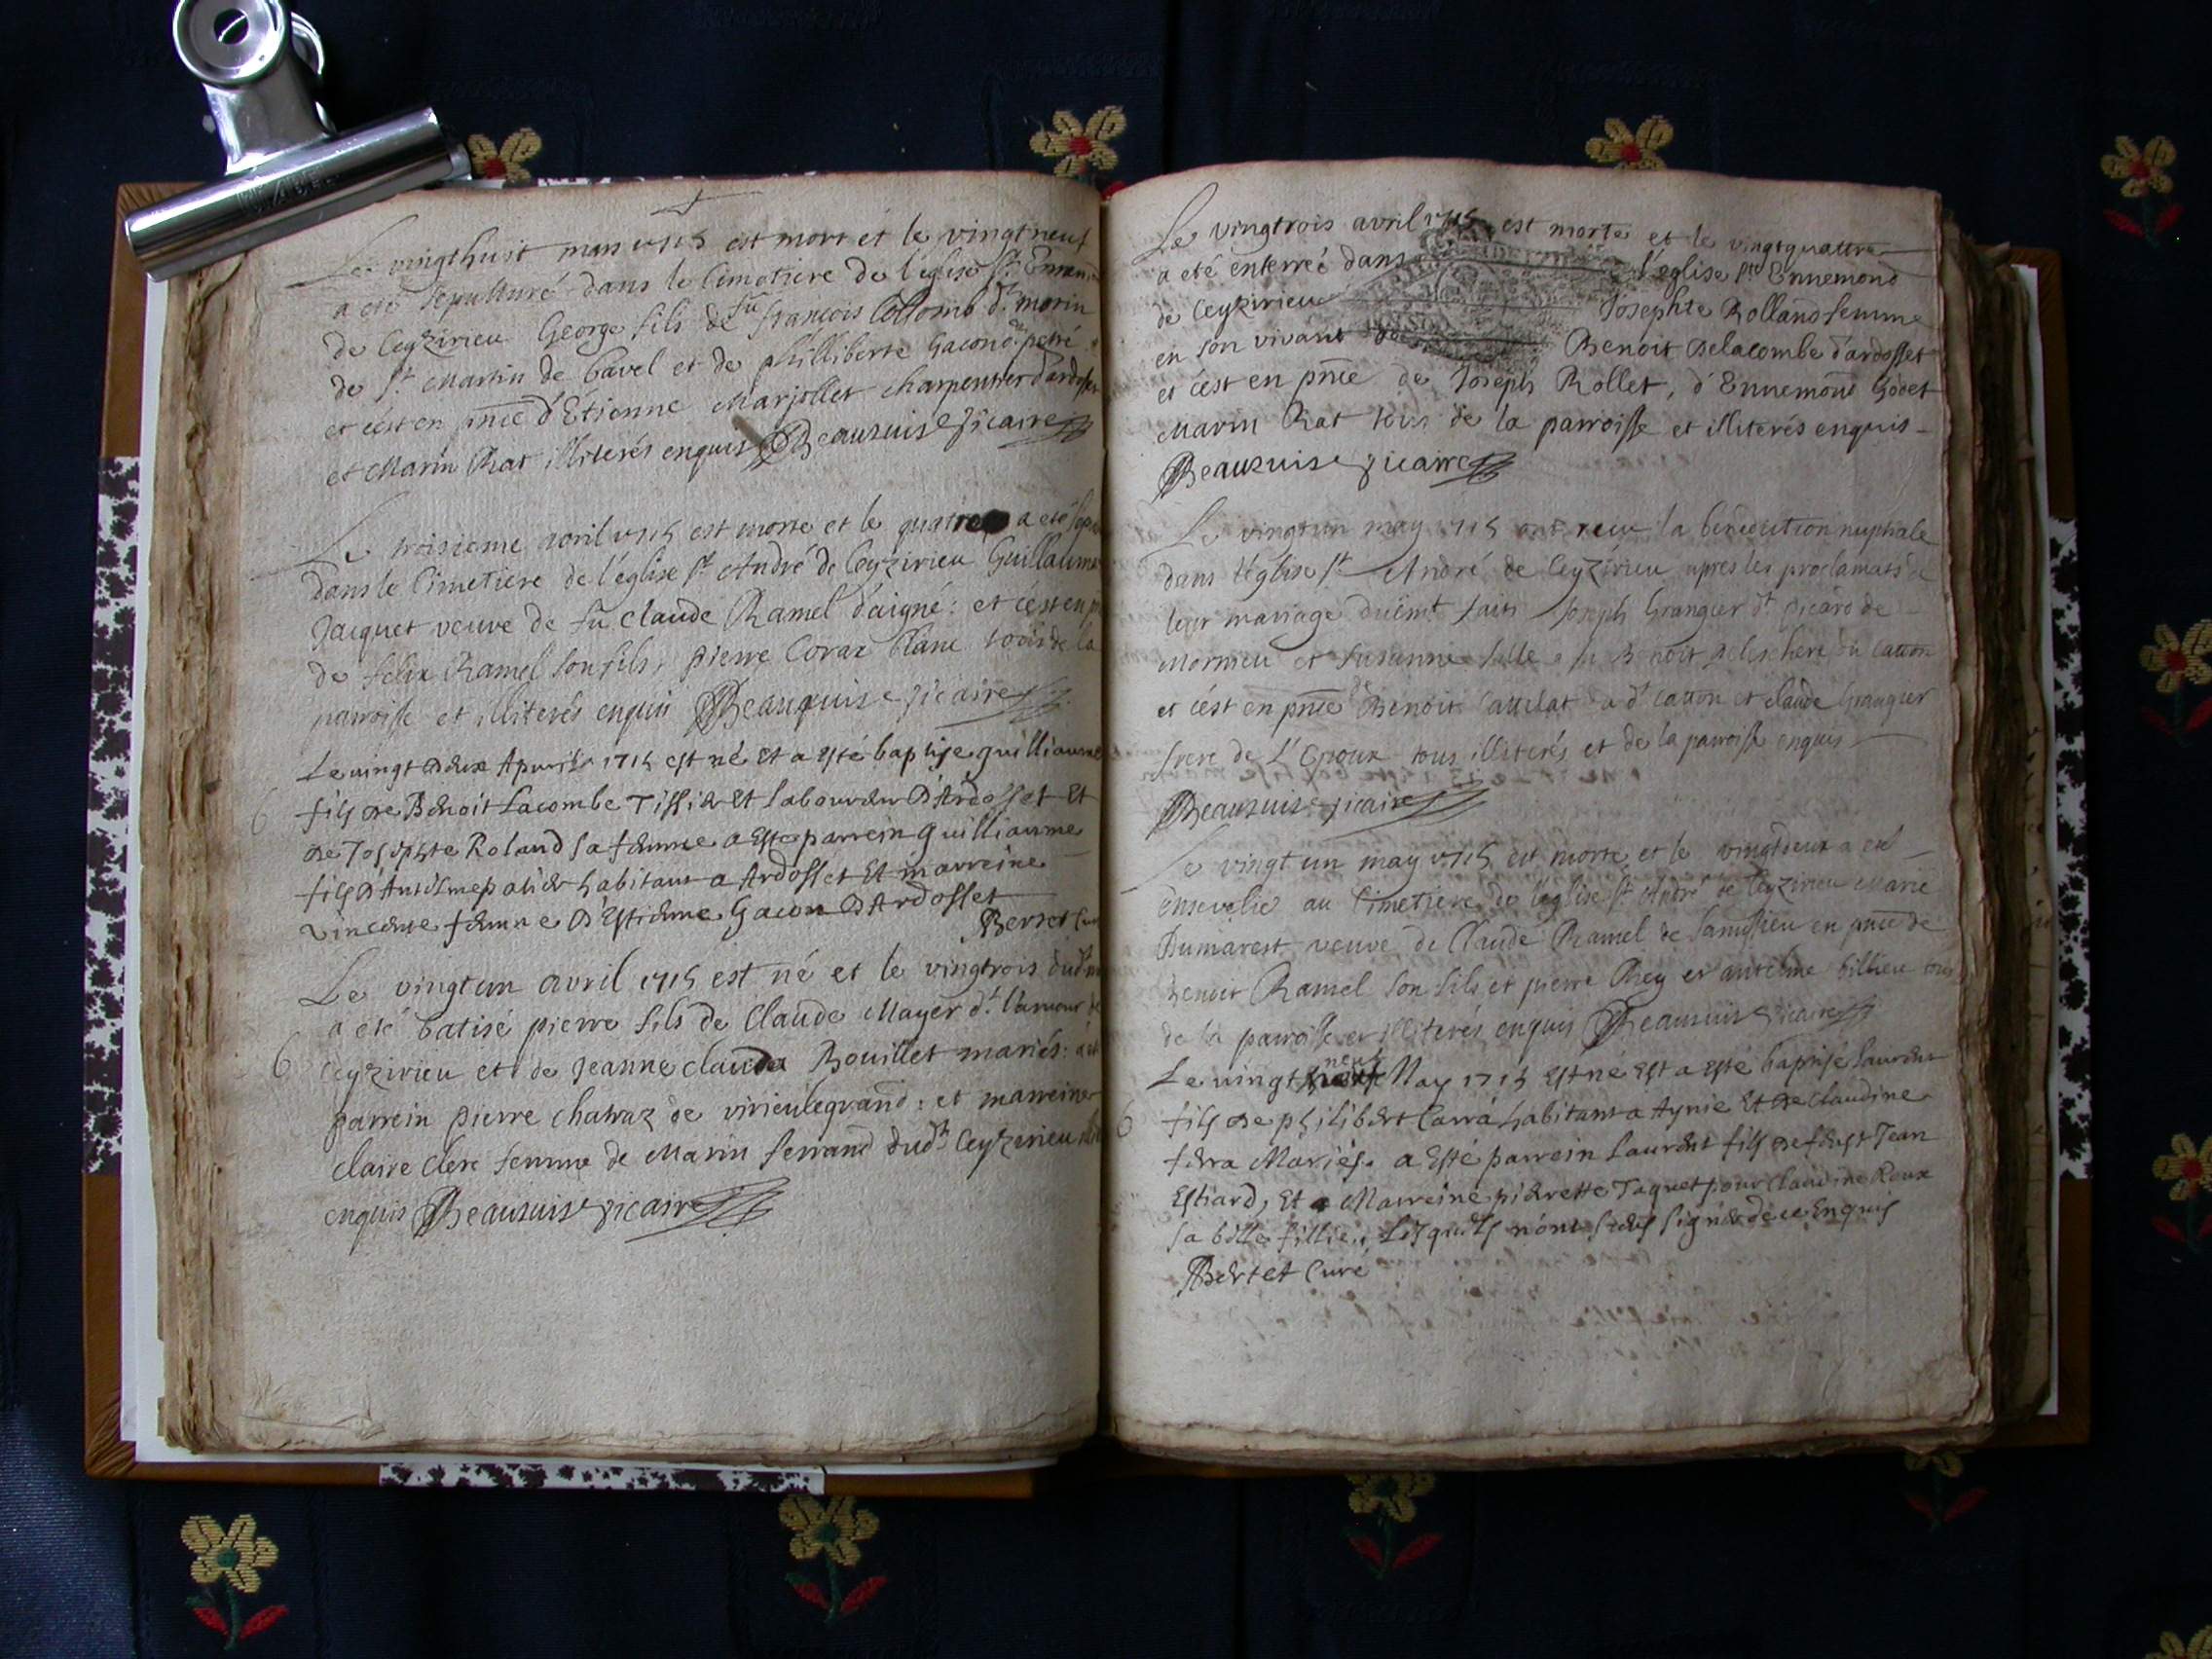 Le vingthuit mars 1715 est mort et le vingtneuf
a eté sepulturé dans le Cimetiere de l'église St
de Ceyzirieu George fils de fu françois Collomb dt morin
de St Martin de bavel et de philliberte Gacond
et c'est en pnce d'Etienne Marjollet charpentier d'ardosset
et Marin Rat illiterés enquis Beauquise vicaire
Le troisieme avril 1715 est morte et le quatre a eté
dans le Cimetiere de l'église St André de Ceyzirieu Guillaume
Jacquet veuve de fu Claude Ramel d'aigné: et c'est en
de felix Ramel son fils, pierre Coraz blanc tous de la
parroisse et illiterés enquis Beauquise vicaire
Le vingt deux Apvril 1715 est né Et a esté baptisé guilliaume
6 fils de Benoit Lacombe Tissier Et laboureur D'Ardosset Et
de Josephte Roland sa femme a Esté parrein guilliaume
fils d'Antelme patier habitant a Ardosset Et marreine
vincente femme D'Estienne Gacon D'Ardosset
Bertet Curé
Le vingtun avril 1715 est né et le vingtrois dudt
a eté batisé pierre fils de Claude Mayer dt l'amour de
6 Ceyzirieu et de Jeanne clauda Bouillet mariés:
parrein pierre chatraz de virieulegrand: et marreine
claire clerc femme de Marin ferrand dudt Ceyzerieu
enquis Beauquise vicaire
Le vingtrois avril 1715 est morte et le vingtquattre
a eté enterreé dans l'église St Ennemond
de Ceyzirieu Josephte Rolland femme
en son vivant de Benoit Delacombe d'ardosset
et c'est en pnce de Joseph Rollet, d'Ennemond Godet
Marin Rat tous de la parroisse et illiterés enquis
Beauquise vicaire
Le vingtun may 1715 ont receu la benediction nuptiale
dans l'église St André de Ceyzirieu apres les proclamats de
leur mariage düemt faits Joseph Grangier dt picard de
Mornieu et Susanne fille Benoit
et c'est en pnce Benoit et claude Grangier
frere de L'Epoux tous illiterés et de la parroisse enquis
Beauquise vicaire
Le vingtun may 1715 est morte et le vingtdeux a eté
ensevelie au Cimetiere de l'église St André de Ceyzirieu Marie
Dumarest veuve de Claude Ramel de en pnce de
benoit Ramel son fils et pierre Rey et antelme billieu tous
de la parroisse et illiterés enquis Beauquise vicaire
Le vingt neuf May 1715 est né Est a esté baptisé laurent
6 fils de philibert Carra habitant a Aynie Et de Claudine
ferra Mariés. a Esté parrein Laurent fils de feust Jean
Estiard, Et a Marreine pierrette Jaquet pour claudine Roux
sa belle fillie, Lesquels n'ont sceus signer de ce Enquis
Bertet Curé